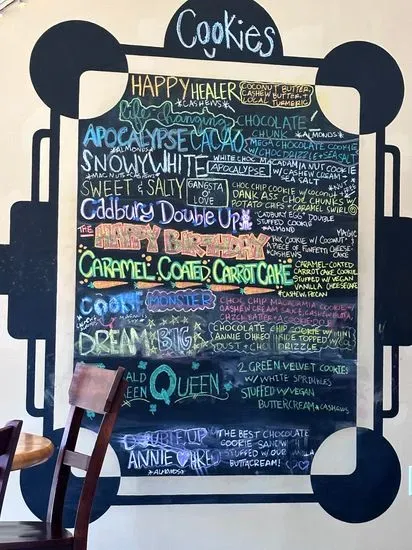 Cookies
HAPPY HEALER COCONUT BUTTER,
CASHEW BUTTER +
LOCAL TURMERIC
*CASHEWS*
life changing CHOCOLATE
CHUNK *ALMONDS*
APOCALYPSE CACAO MEGA CHOCOLATE COOKIE
W/ CHOC DRIZZLE + SEA SALT
*ALMONDS*
SNOWY WHITE APOCALYPSE WHITE CHOC MACADAMIA NUT COOKIE
W/ CASHEW CREAM +
SEA SALT
*MAC NUTS + CASHEWS*
SWEET & SALTY GANGSTA O' LOVE CHOC CHIP COOKIE W/ COCONUT +
DANK ASS CHOC CHUNKS W/
POTATO CHIPS + CARAMEL SWIRL
Cadbury Double Up "CADBURY EGG" DOUBLE
STUFFED COOKIE
*ALMOND
THE HAPPY BIRTHDAY PINK COOKIE W/ COCONUT +
A PIECE OF FUNFETTI CHEESE
CAKE
*CASHEWS
MAGIC
CARAMEL COATED CARROT CAKE CARAMEL-COATED
CARROT CAKE COOKIE
STUFFED W/ VEGAN
VANILLA CHEESECAKE
*CASHEW PECAN
COOKIE MONSTER CHOC CHIP MACADAMIA COOKIE W/
CASHEW CREAM SAUCE, CASHEW BUTTA
DREAM BIG CHOCOLATE CHIP COOKIE W/ MINI
ANNIE OHKEO INSIDE TOPPED W/ GOLD
DUST + CHOC DRIZZLE
QUEEN 2 GREEN VELVET COOKIES
W/ WHITE SPRINKLES
STUFFED W/ VEGAN
BUTTERCREAM *CASHEWS
DOUBLE UP THE BEST CHOCOLATE
COOKIE SANDWICH
ANNIE OHKEO STUFFED W/ OUR VANILLA
BUTTACREAM!
*ALMONDS*